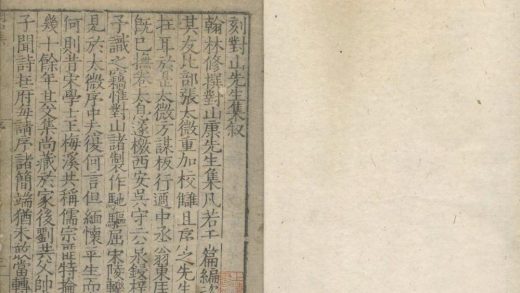 刻對山先生集叙
翰林修撰對山康先生集凡若干篇編次
其友比部張太微重加校讎且序之先生
在耳於是太微方謀板行適中丞翁東厓
既已撫卷太息遂檄西安吳守六泉鋟梓
子識之竊惟對山諸制作馳驅屈宋陵轢
見於太微序中夫復何言但緬懷平生而
何則昔宋學士王梅溪共稱儒宗匪特掄
幾十餘年其文集尚藏於家後劉共父帥
子聞詩在府每請序諸簡端猶未敢當轉